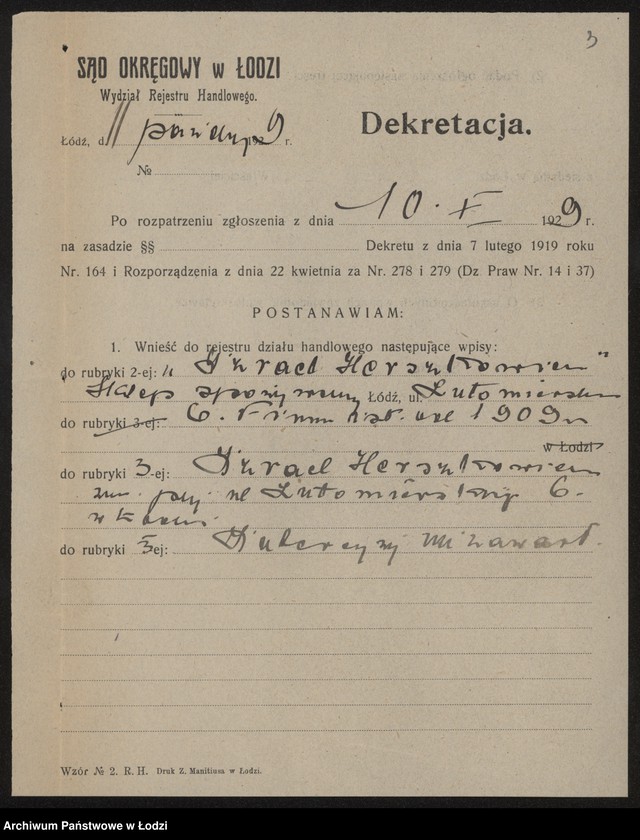 3
SĄD OKRĘGOWY w ŁODZI
Wydział Rejestru Handlowego.
Łódź, d. 11 paździer 1929 r.
Dekretacja.
№
Po rozpatrzeniu zgłoszenia z dnia 10. X 1929 r.
na zasadzie §§ Dekretu z dnia 7 lutego 1919 roku
Nr. 164 i Rozporządzenia z dnia 22 kwietnia za Nr. 278 i 279 (Dz Praw Nr. 14 i 37)
POSTANAWIAM:
1. Wnieść do rejestru działu handlowego następujące wpisy:
do rubryki 2-ej: „Izrael Herszkowicz”
Sklep spożywczy Łódź, ul. Lutomierska
do rubryki 3-ej: 6. Firma istn. od 1909 r.
w Łodzi
do rubryki 3-ej: Izrael Herszkowicz
zam. przy ul Lutomierskiej 6.
w Łodzi
do rubryki 5-ej: Intercyzy nie zawarł.
Wzór № 2. R. H. Druk Z. Manitiusa w Łodzi.
Archiwum Państwowe w Łodzi